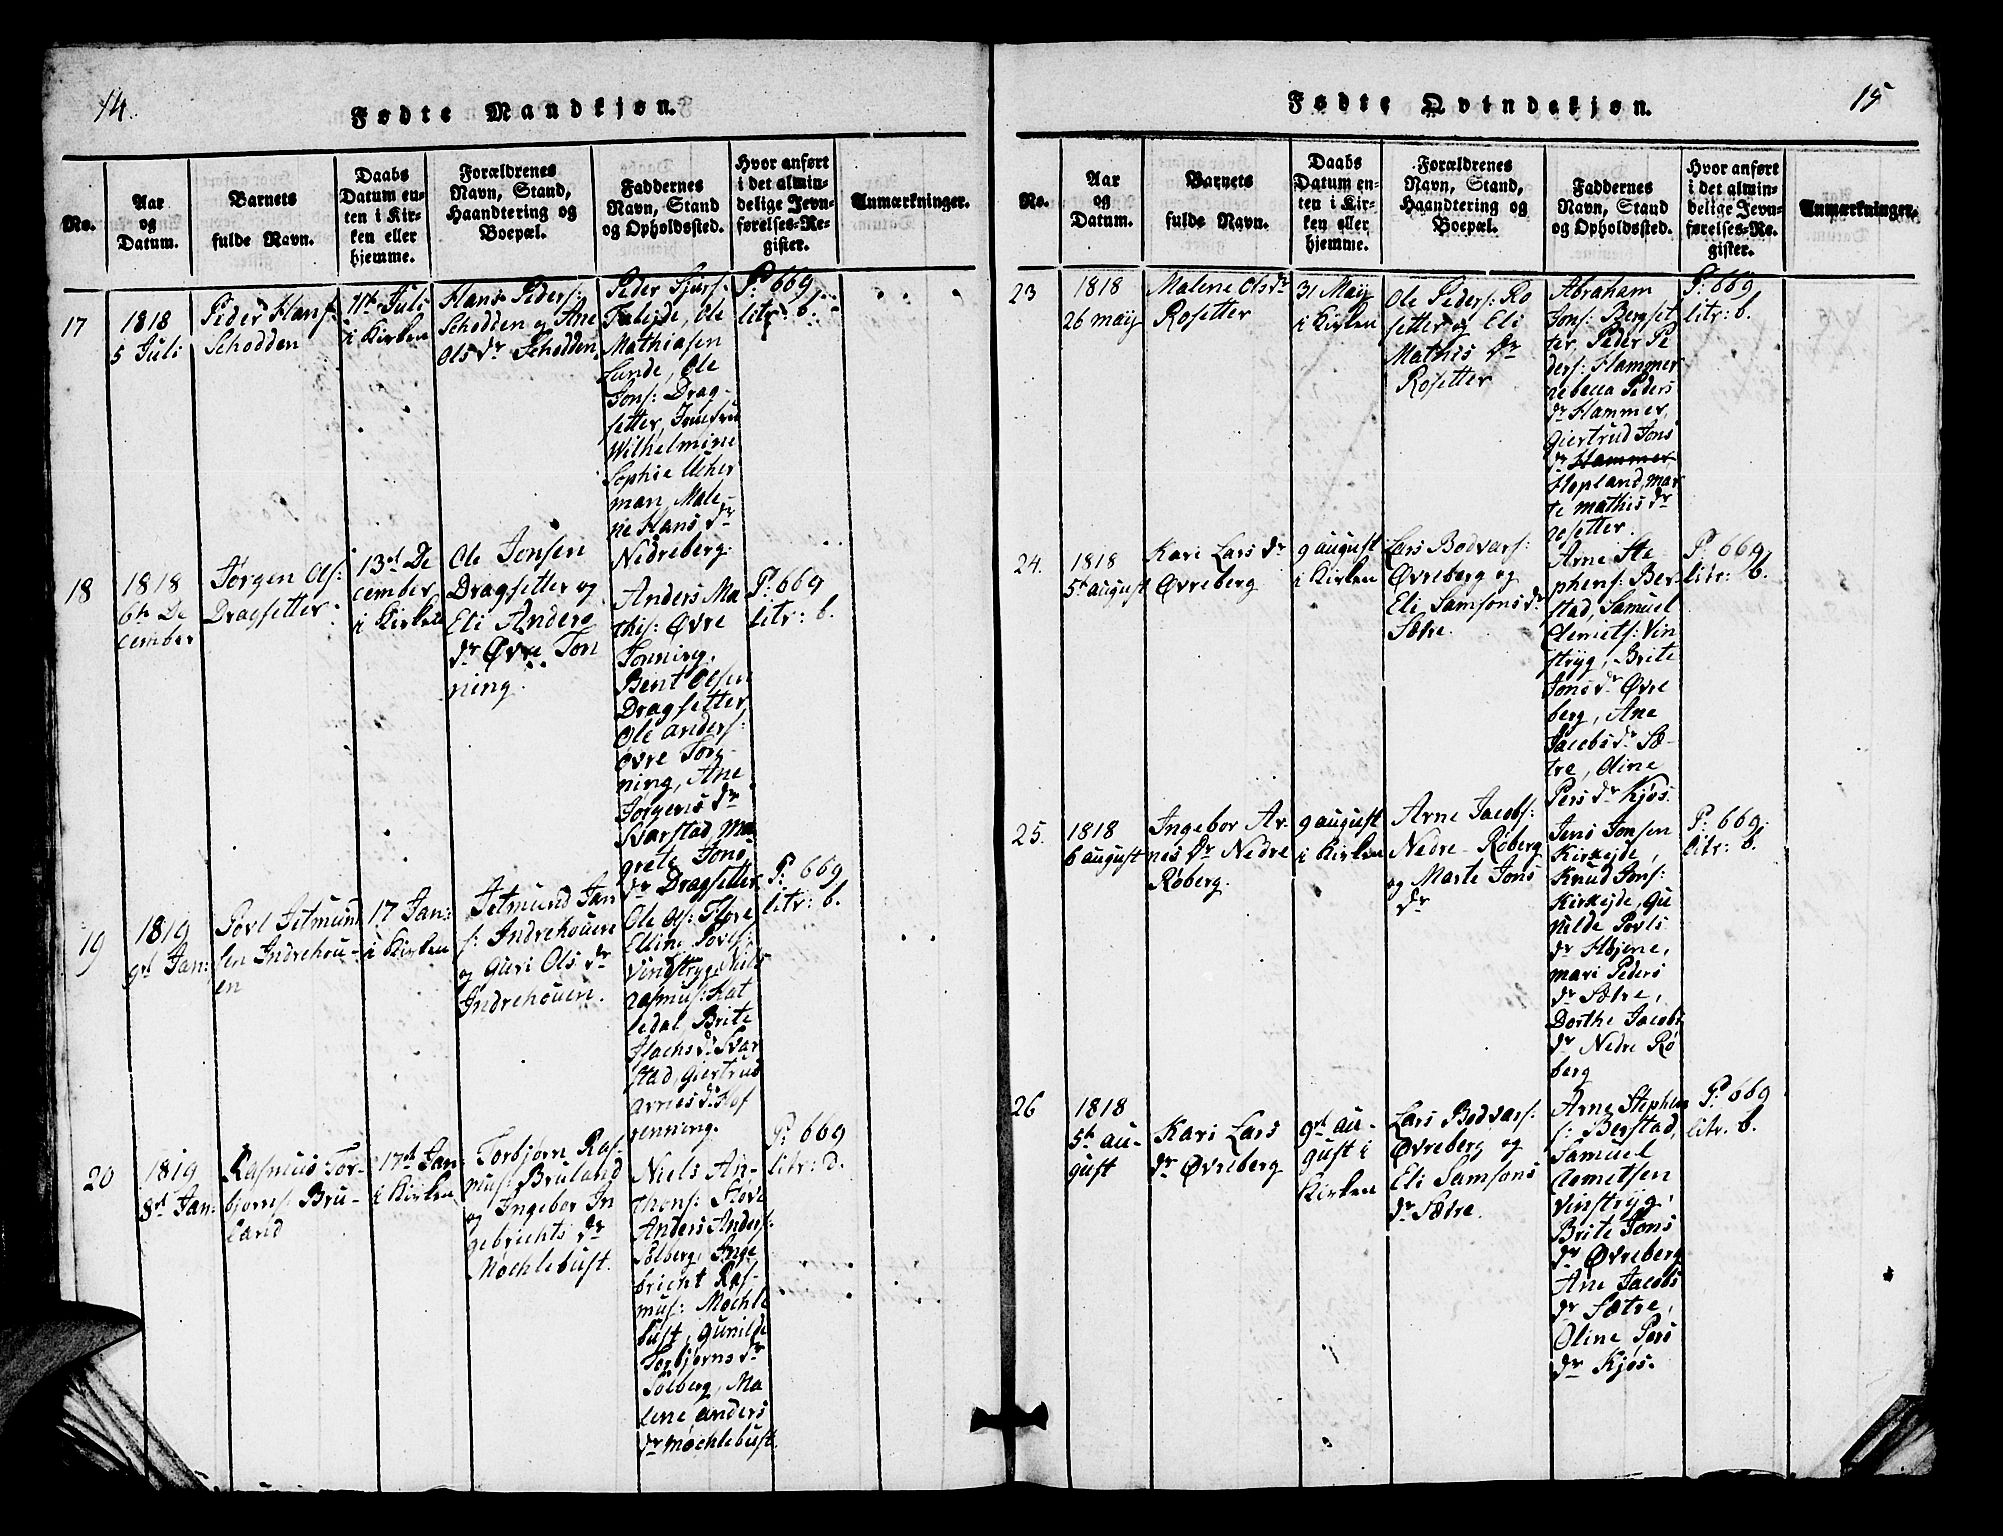 14.
Fødte Mandkjøn.
No.
Aar
og
Datum.
Barnets
fulde Navn.
Daabs
Datum en-
ten i Kir-
ken eller
hjemme.
Forældrenes
Navn, Stand,
Haandtering og
Boepæl.
Faddernes
Navn, Stand
og Opholdssted.
Hvor anført
i det almin-
delige Jevn-
førelses-Re-
gister.
Anmærkninger.
17
1818
5 Juli
Peder Hans:
Schodden
11te Juli
i Kirken
Hans Peders:
Schodden og Ane
Ols dr Schodden
Peder Sjurs:
Taleide, Ole
Mathiasen
Lunde, Ole
Jons: Drag-
setter, Jomfru
Wilhelmine
Sophie Ucher
man, Male-
ne Hans dr
Nedreberg.
P: 669
litr: b.
18
1818
6te De
cember
Jørgen Ols:
Dragsetter
13de De
cember
i Kirken
Ole Jonsen
Dragsetter og
Eli Anders
dr Øvre Ton
ning.
Anders Ma
this: Øvre
Tonning,
Bent Olsen
Dragsetter
Ole Anders:
Øvre Ton-
ning, Ane
Jørgens dr
Svarstad, Ma
grete Jons
dr Dragsetter
P: 669
litr: b.
19
1819
9de Jan:
Povl Jetmund
sen Indrehou-
en
17 Jan:
i Kirken
Jetmund Jan
s: Indrehouen
og Guri Ols dr
Indrehouen.
Ole Ols: Flore
Elline Povls:
Vindstryge Nils
Rasmus: Kat
ledal, Brite
Isachs dr Svar
stad, Giertrud
Arnes dr Hof
renning.
P: 669
litr: b.
20
1819
8de Jan:
Rasmus Tor-
bjørns: Bru-
land
17de Jan
i Kirken
Torbjørn Ras-
mus: Bruland
og Ingebor In
gebrichts dr
Møchlebust.
Niels An-
thons: Støve
Anders Anders:
Solberg, Inge
bricht Ras-
mus: Møchle
bust, Gunilde
Torbjørns dr
Solberg, Ma
lene Anders
dr Møchlebust.
P: 669
litr: d.
15
Fødte Qvindekjøn.
No.
Aar
og
Datum.
Barnets
fulde Navn.
Daabs
Datum en-
ten i Kir-
ken eller
hjemme.
Forældrenes
Navn, Stand,
Haandtering og
Boepæl.
Faddernes
Navn, Stand
og Opholdssted.
Hvor anført
i det almin-
delige Jevn-
førelses-Re-
gister.
Anmærkninger.
23
1818
26 may
Malene Ols dr
Rosetter
31 May
i Kirken
Ole Peders: Ro
setter og Eli
Mathis dr
Rosetter
Abraham
Jons: Bergset
ter, Peder Pe
ders: Hammer
Rebecca Peders
dr Hammer,
Giertrud Jons
dr Hammer
Hopland, mar
te mathis dr
Rosetter.
P: 669
litr: b.
24.
1818
5te august
Kari Lars dr
Øvreberg
9 august
i Kirken
Lars Bodvars:
Øvreberg og
Eli Samsons dr
Sætre.
Arne Ste-
phens: Ber-
stad, Samuel
Clemets: Vin
stryg, Brite
Jons dr Øvre
berg, Ane
Jacobs dr Sæ-
tre, Oline
Pers dr Kjøs.
P: 669
litr: b.
25.
1818
6 august
Ingebor Ar-
nes dr Nedre
Røberg.
9 august
i Kirken
Arne Jacobs:
Nedre-Røberg
og Marte Jons
dr
Jens Jonsen
Kirkejde,
Knud Jons:
Kirkejde, Gu
nilde Povls
dr Hjene,
mari Peders
dr Sætre,
Dorthe Jacobs
dr Nedre Rø
berg
P: 669:
litr: b.
26
1818
5te au-
gust
Kari Lars
dr Øvreberg
9de au-
gust i
Kirken
Lars Bodvars:
Øvreberg og
Eli Samsons
dr Sætre.
Arne Stephen
s: Berstad,
Samuel
Clemetsen
Vinstryg,
Brite Jons
dr Øvreberg
Ane Jacobs
dr Sætre,
Oline Pers
dr Kjøs.
P: 669
litr. b.